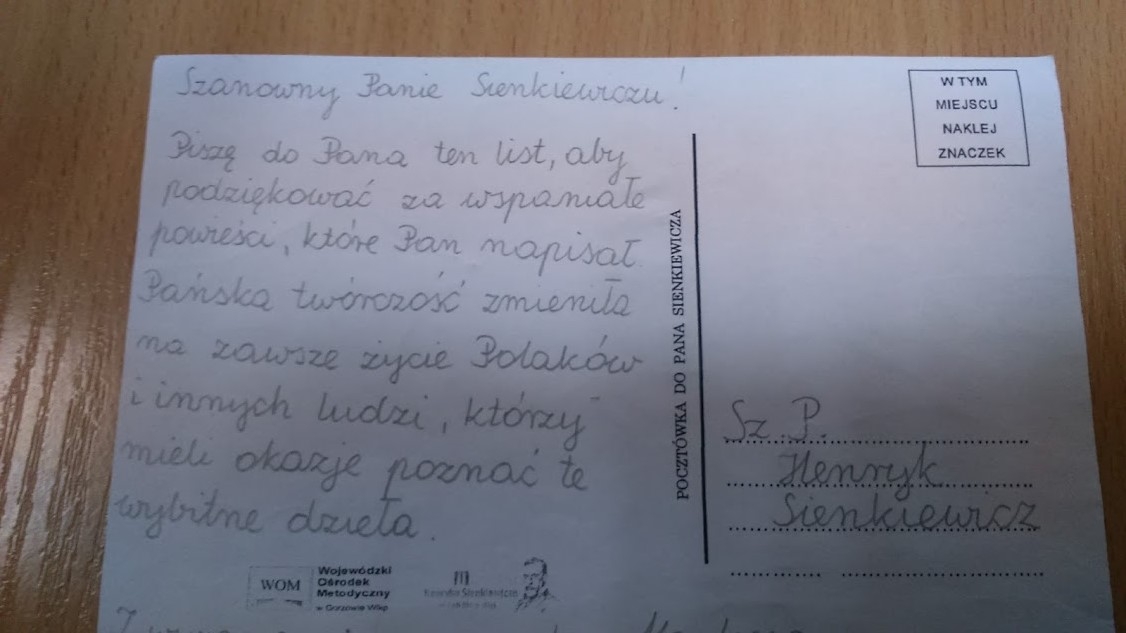 Szanowny Panie Sienkiewiczu!
Piszę do Pana ten list, aby
podziękować za wspaniałe
powieści, które Pan napisał.
Pańska twórczość zmieniła
na zawsze życie Polaków
i innych ludzi, którzy
mieli okazje poznać te
wybitne dzieła.
WOM
Wojewódzki
Ośrodek
Metodyczny
w Gorzowie Wlkp
POCZTÓWKA DO PANA SIENKIEWICZA
W TYM
MIEJSCU
NAKLEJ
ZNACZEK
Sz. P.
Henryk
Sienkiewicz